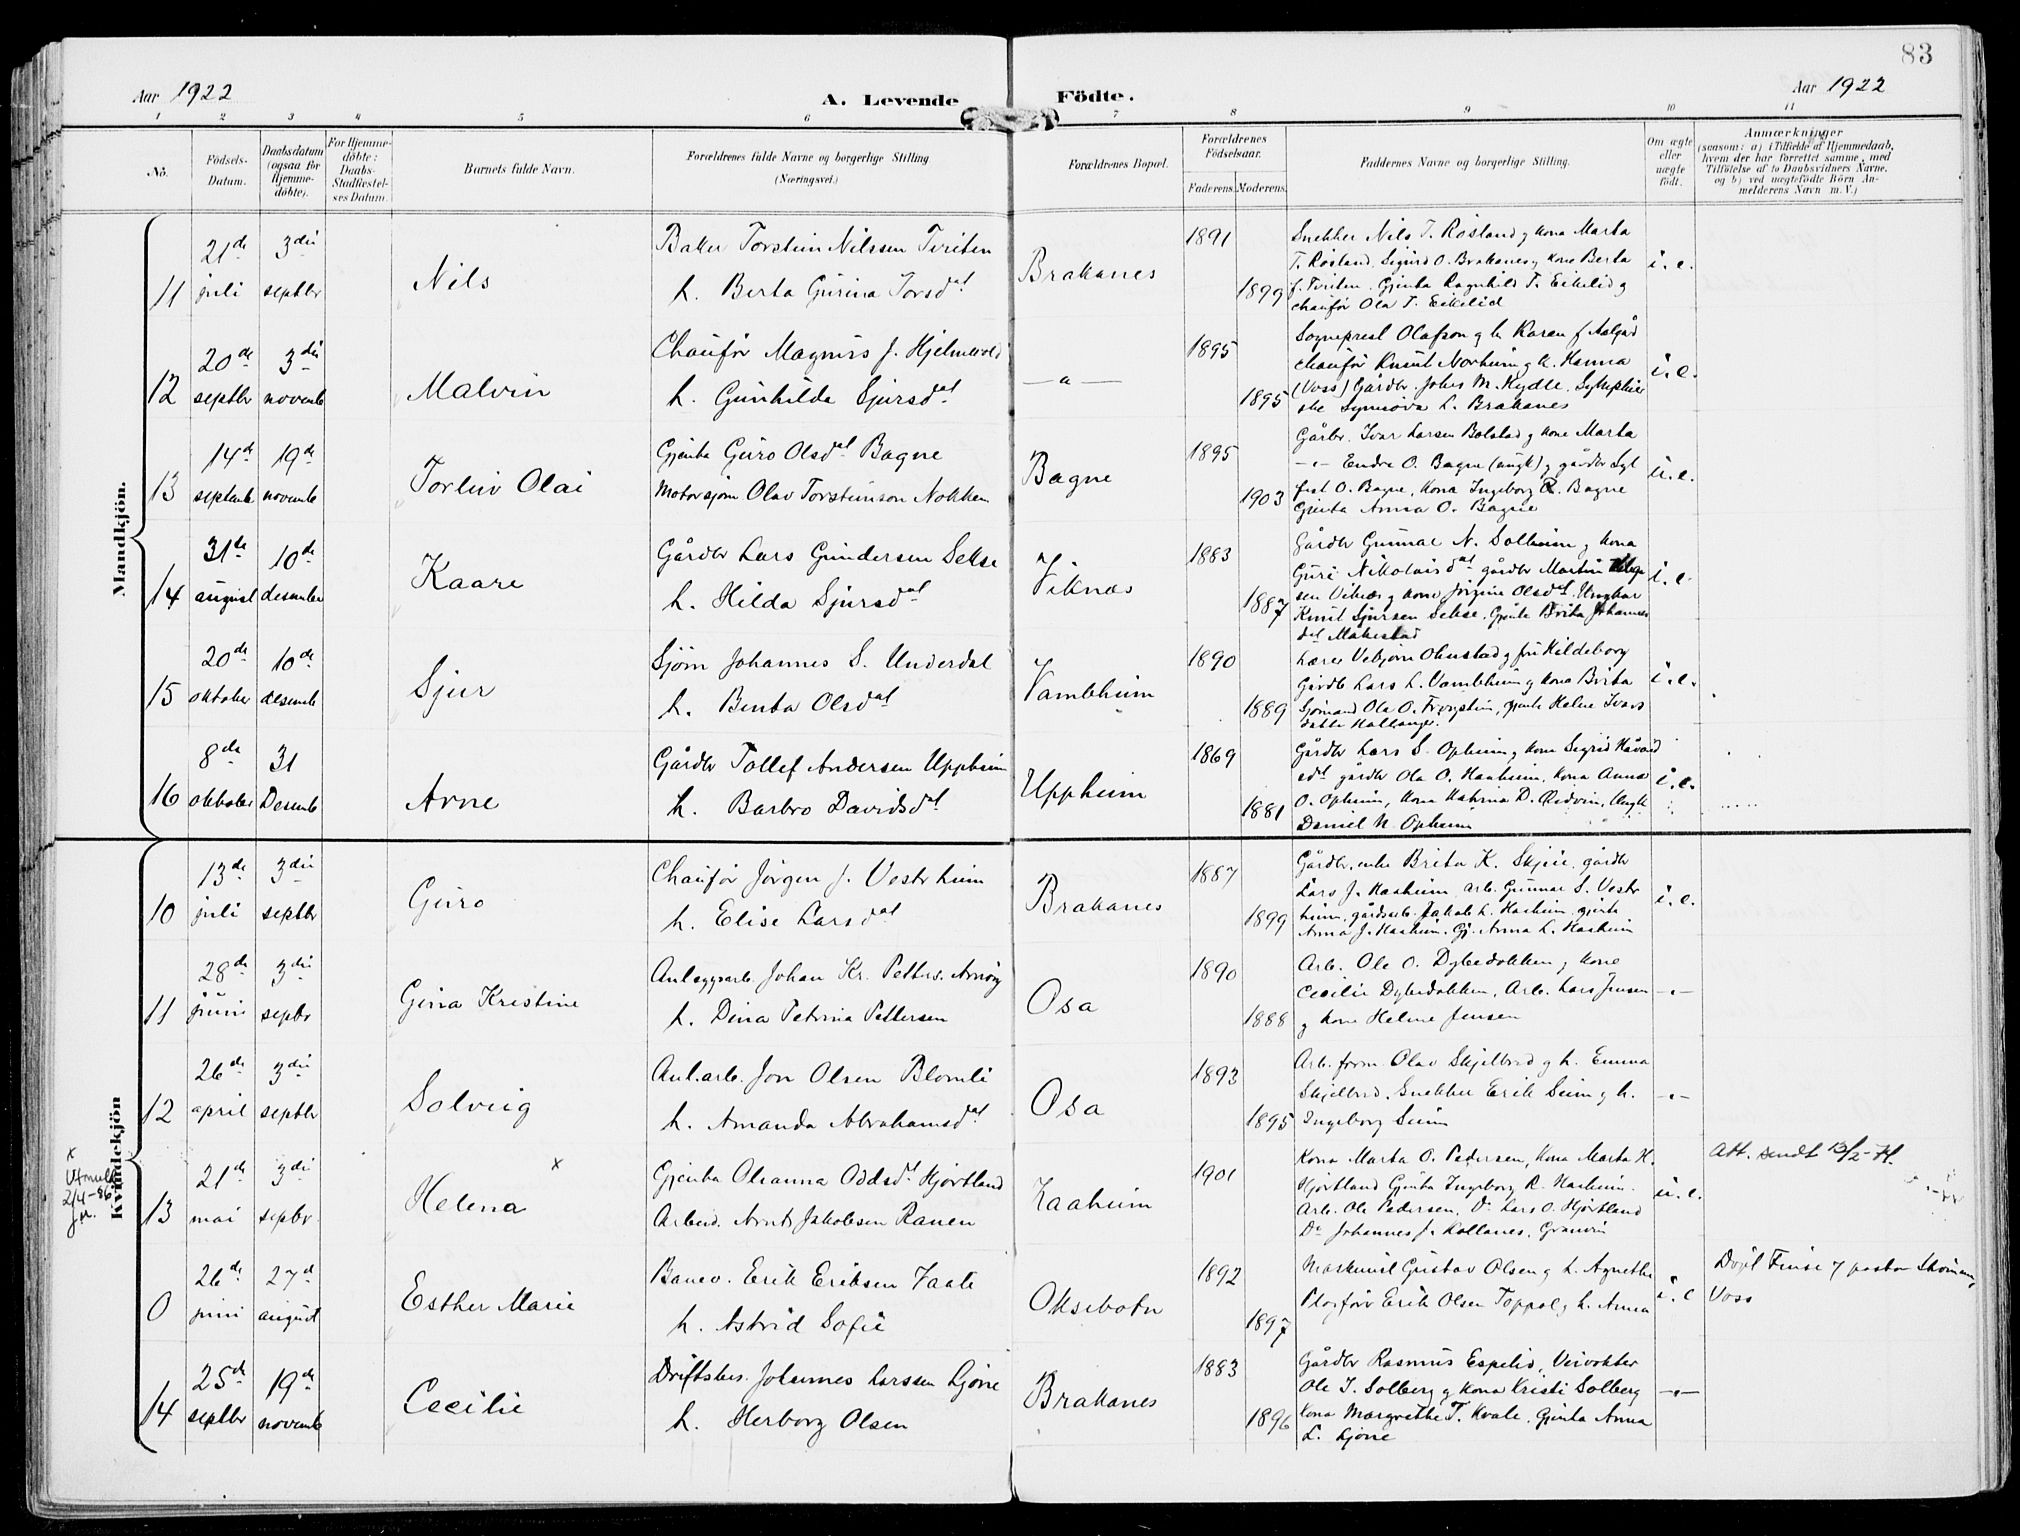 83
Aar 1922
A. Levende Födte.
Aar 1922
1 2 3 4 5 6 7 8 9 10 11
No.
Födsels-
Datum.
Daabsdatum
(ogsaa for
Hjemme-
döbte).
For Hjemme-
döbte:
Daabs-
Stadfæstel-
ses Datum.
Barnets fulde Navn.
Forældrenes fulde Navne og borgerlige Stilling
(Næringsvei.)
Forældrenes Bopæl.
Forældrenes
Födselsaar.
Faderens. Moderens.
Faddernes Navne og borgerlige Stilling.
Om ægte
eller
uægte
födt.
Anmærkninger
(saasom: a) i Tilfælde af Hjemmedaab,
hvem der har forrettet samme, med
Tilföielse af to Daabsvidners Navne.
og b) ved uægtefödte Börn An-
melderens Navn m. V.)
Mandkjön.
11
21de
juli
3die
septbr
Nils
Baker Torstein Nilssen Tveiten
h. Berta Gurina Torsdat
Brakanes
1891
1899
Snekker Nils T. Røsland g kona Marta
T. Røsland. Sigurd O. Brakanes g kone Berta
f. Tveiten. Gjenta Ragnhild T. Eikelid g
chaufør Ola T. Eikelid
i. e.
12
20de
septbr
3die
novemb
Malvin
Chaufør Magnus J. Hjelmevold
h. Gunhilda Sjursdat
— " —
1895
1895
Sogneprest Olafson g h. Karen f. Aalgård
chaufør Knut Norheim g h. Hanna
(Voss) Gårdbr. Johs M. Kydle,
Synnøva L. Brakanes
i. e.
13
14de
septemb
19de
novemb
Torleiv Olai
Gjenta Guro Olsdat Bagne
Motorsjøm Olav Torsteinson Nokken
Bagne
1895
1903
Gårbr. Ivar Larsen Bolstad g kone Marta
— " — Endre O. Bagne (ungk) g gårdbr Syl
fest O. Bagne, Kona Ingeborg R. Bagne
Gjenta Anna O. Bagne
u. e.
14
31de
august
10de
desember
Kaare
Gårdbr Lars Gundersen Sekse
h. Hilda Sjursdat
Viknes
1883
1887
Gårdbr Gunnar N. Solheim g kona
Guri Nikolaisdat gårdbr Martin
sen Viknes g kone Jørgine Olsdat. Ungkar
Knut Sjursen Sekse. Gjente Brita Johannes
dat Måkestad
i. e.
15
20de
oktober
10de
desemb
Sjur
Sjøm Johannes S. Underdal
h. Benta Olsdat
Vambheim
1890
1889
Lærer Vebjørn Olmstad g fru Hildeborg
Gårdb Lars L. Vambheim g kona Brita
Sjømand Ola O. Frøystein, gjente Helene Ivars
datter
i. e.
16
8de
oktober
31
Desemb
Arne
Gårdbr Tollef Andersen Uppheim
h. Barbro Davidsdat
Uppheim
1869
1881
Gårdbr Lars S. Opheim g kone Sigrid Håvard
sdt gårdbr Ola O. Haaheim, Kona Anna
O. Opheim, Kona Katrina D. Ungk
Daniel N. Opheim
i. e.
Kvindekjön
10
13de
juli
3die
septbr
Guro
Chaufør Jørgen J. Vestrheim
h. Elise Larsdat
Brakanes
1887
1899
Gårdbr. enke Brita K. Skjeie, gårdbr
Lars J. Haaheim, arb. Gunnar S. Vestr
heim, gårdsarb. Jakob L. Haaheim, gjente
Anna J. Haaheim. Gj. Anna L. Haaheim
i. e.
11
28de
juni
3die
septbr
Gina Kristine
Anleggsarb. Johan Kr. Petters. Arnøy
h. Dina Petrina Pettersen
Osa
1890
1888
Arb. Ole O. Dybedokken g kone
Cecilie Dybedokken, Arb. Lars Jensen
g kone Helene Jensen
— " —
12
26de
april
3die
septbr
Solveig
Anl. arb. Jon Olsen Blomli
h. Amanda Abrahamsdat
Osa
1893
1895
Arb. form. Olav Skjelbred g h. Emma
Skjelbred, Snekker Erik Seim g h.
Ingeborg Seim
— " —
x
2/4-86
13
21de
mai
3die
septbr.
Helena x
Gjenta Olianna Oddsdt Hjørtland
Arbeid. Arnt Jakobsen Ranen
Haaheim
1901
Kona Marta O. Pedersen, Kona Marta H.
Hjørtland Gjenta Ingeborg R. Haaheim.
Arb. Ole Pedersen, Do Lars O. Hjørtland
Do Johannes J. Kollanes, Granvin
u. e.
Att. sendt 13/2-
0
26de
juni
27d
august
Esther Marie
Banev. Erik Eriksen Vaate
h. Astrid Sofie
Oksebotn
1892
1897
Maskinist Gustav Olsen g h. Agnethe
Plogfører Erik Olsen Toppol g h. Anna
i. e
Døpt Finse af pastor
Voss
14
25de
septbr
19de
novemb
Cecilie
Driftsbes. Johannes Larssen Ljone
h. Herborg Olsen
Brakanes
1883
1896
Gårdbr Rasmus Espelid, Veivokter
Ole I. Solberg g kona Kristi Solberg
Kona Margrethe T. Kvale, Gjenta Anna
L. Ljone
— " —